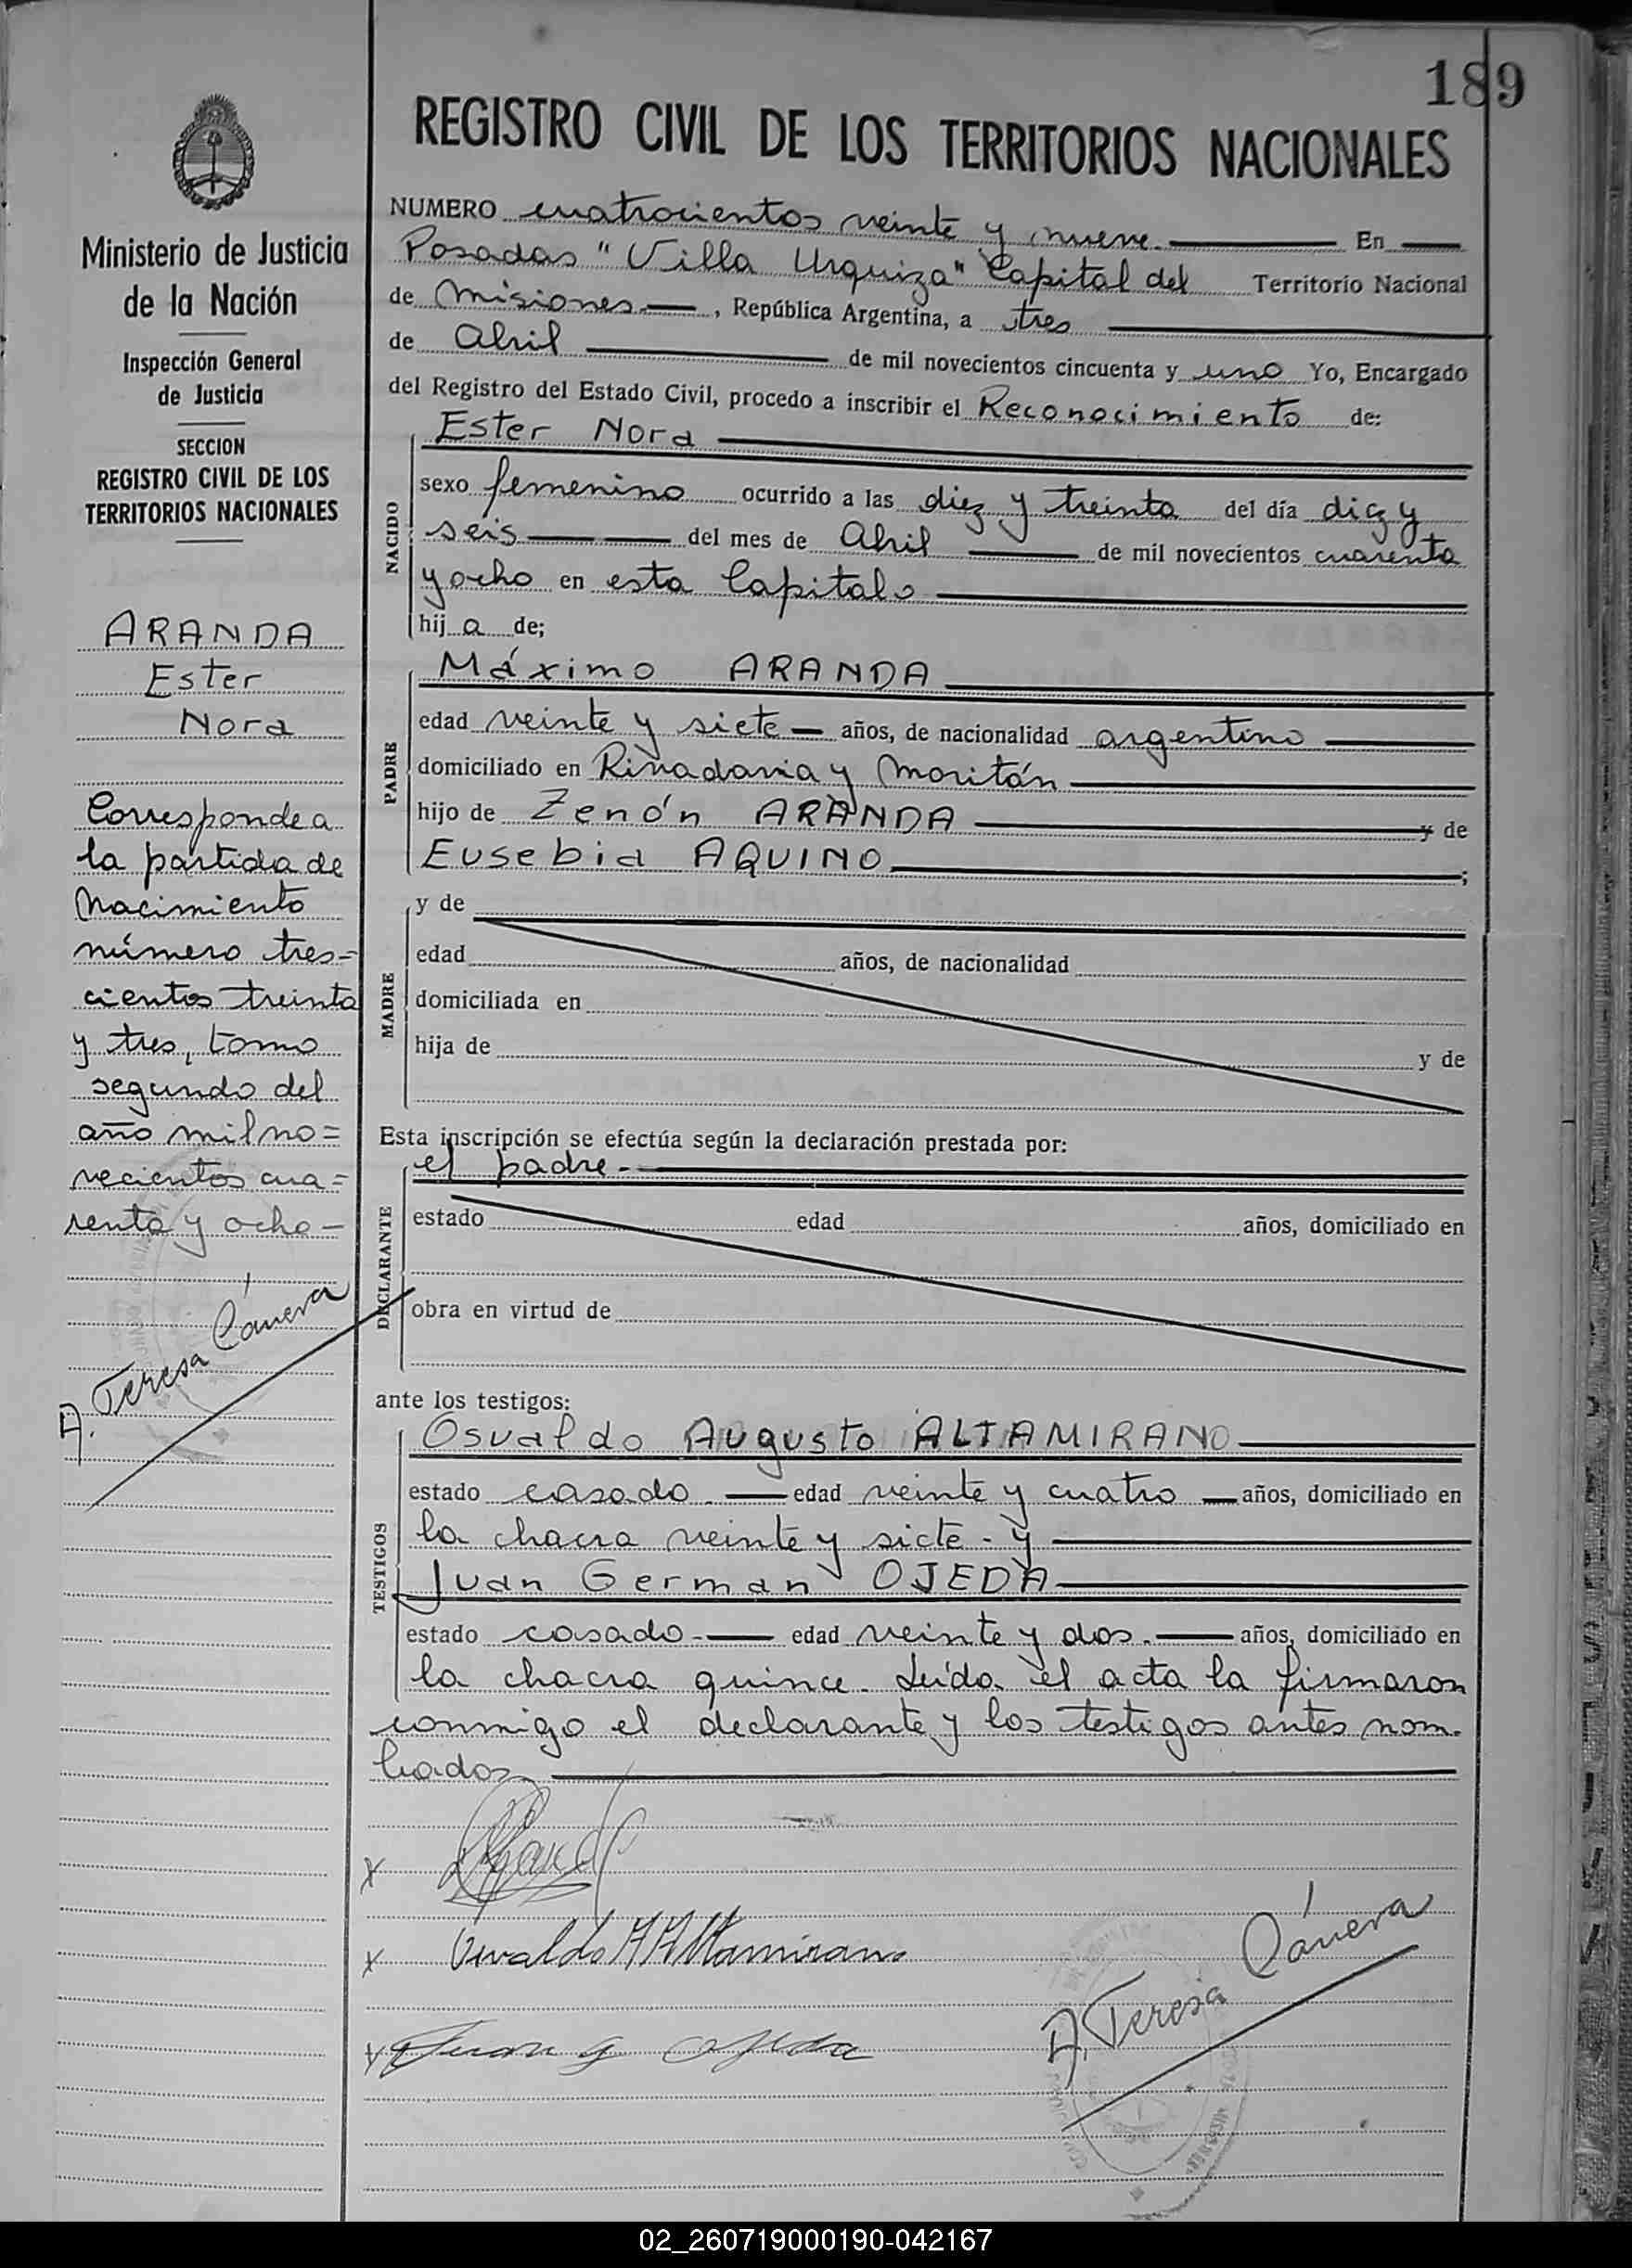 189
REGISTRO CIVIL DE LOS TERRITORIOS NACIONALES
Ministerio de Justicia
de la Nación
Inspección General
de Justicia
SECCION
REGISTRO CIVIL DE LOS
TERRITORIOS NACIONALES
ARANDA
Ester
Nora
Corresponde a
la partida de
Nacimiento
número tres=
cientos treinta
y tres, tomo
segundo del
año mil no=
vecientos cua=
renta y ocho—
A. Teresa
NUMERO cuatrocientos veinte y nueve. En
Posadas "Villa Urquiza" Capital del Territorio Nacional
de Misiones, República Argentina, a tres
de Abril de mil novecientos cincuenta y uno Yo, Encargado
del Registro del Estado Civil, procedo a inscribir el Reconocimiento de:
Ester Nora
NACIDO
sexo femenino ocurrido a las diez y treinta del día diez y
seis del mes de Abril de mil novecientos cuarenta
y ocho en esta Capital
hij a de;
PADRE
Máximo ARANDA
edad veinte y siete años, de nacionalidad argentino
domiciliado en y
hijo de Zenón ARANDA y de
Eusebia AQUINO ;
MADRE
y de
edad años, de nacionalidad
domiciliada en
hija de y de
Esta inscripción se efectúa según la declaración prestada por:
el padre.-
DECLARANTE
estado edad años, domiciliado en
obra en virtud de
ante los testigos:
TESTIGOS
Osvaldo Augusto ALTAMIRANO
estado casado. edad veinte y cuatro años, domiciliado en
la chacra veinte y siete - y
Juan German OJEDA
estado casado.- edad veinte y dos. años, domiciliado en
la chacra quince. Leída el acta la firmaron
conmigo el declarante y los testigos antes nom-
brados
x
x Osvaldo A Altamirano
x Juan G Ojeda
A. Teresa
02_260719000190-042167